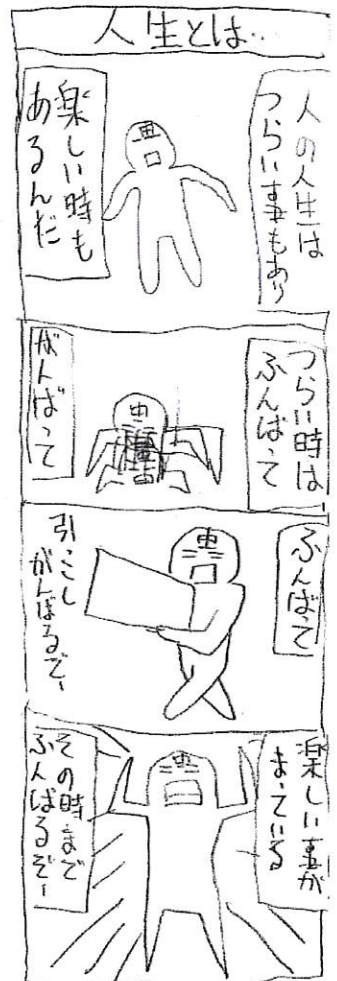 人生とは‥
人の人生は
つらい事もあり
楽しい時も
あるんだ
つらい時は
ふんばって
がんばって
ふんばって
引こし
がんばるぞー
楽しい事が
まっている
その時まで
ふんばるぞー